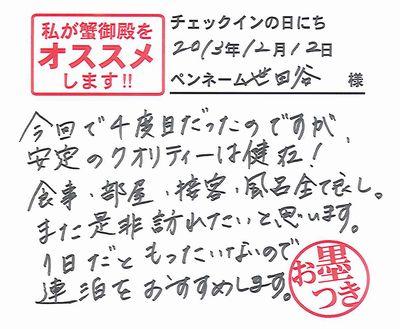 私が蟹御殿を
オススメ
します!!
チェックインの日にち
2013年12月12日
ペンネーム 世田谷 様
今回で4度目だったのですが、
安定のクオリティーは健在!
食事・部屋・接客・風呂全て良し。
また是非訪れたいと思います。
1日だともったいないので
連泊をおすすめします。
お墨
つき